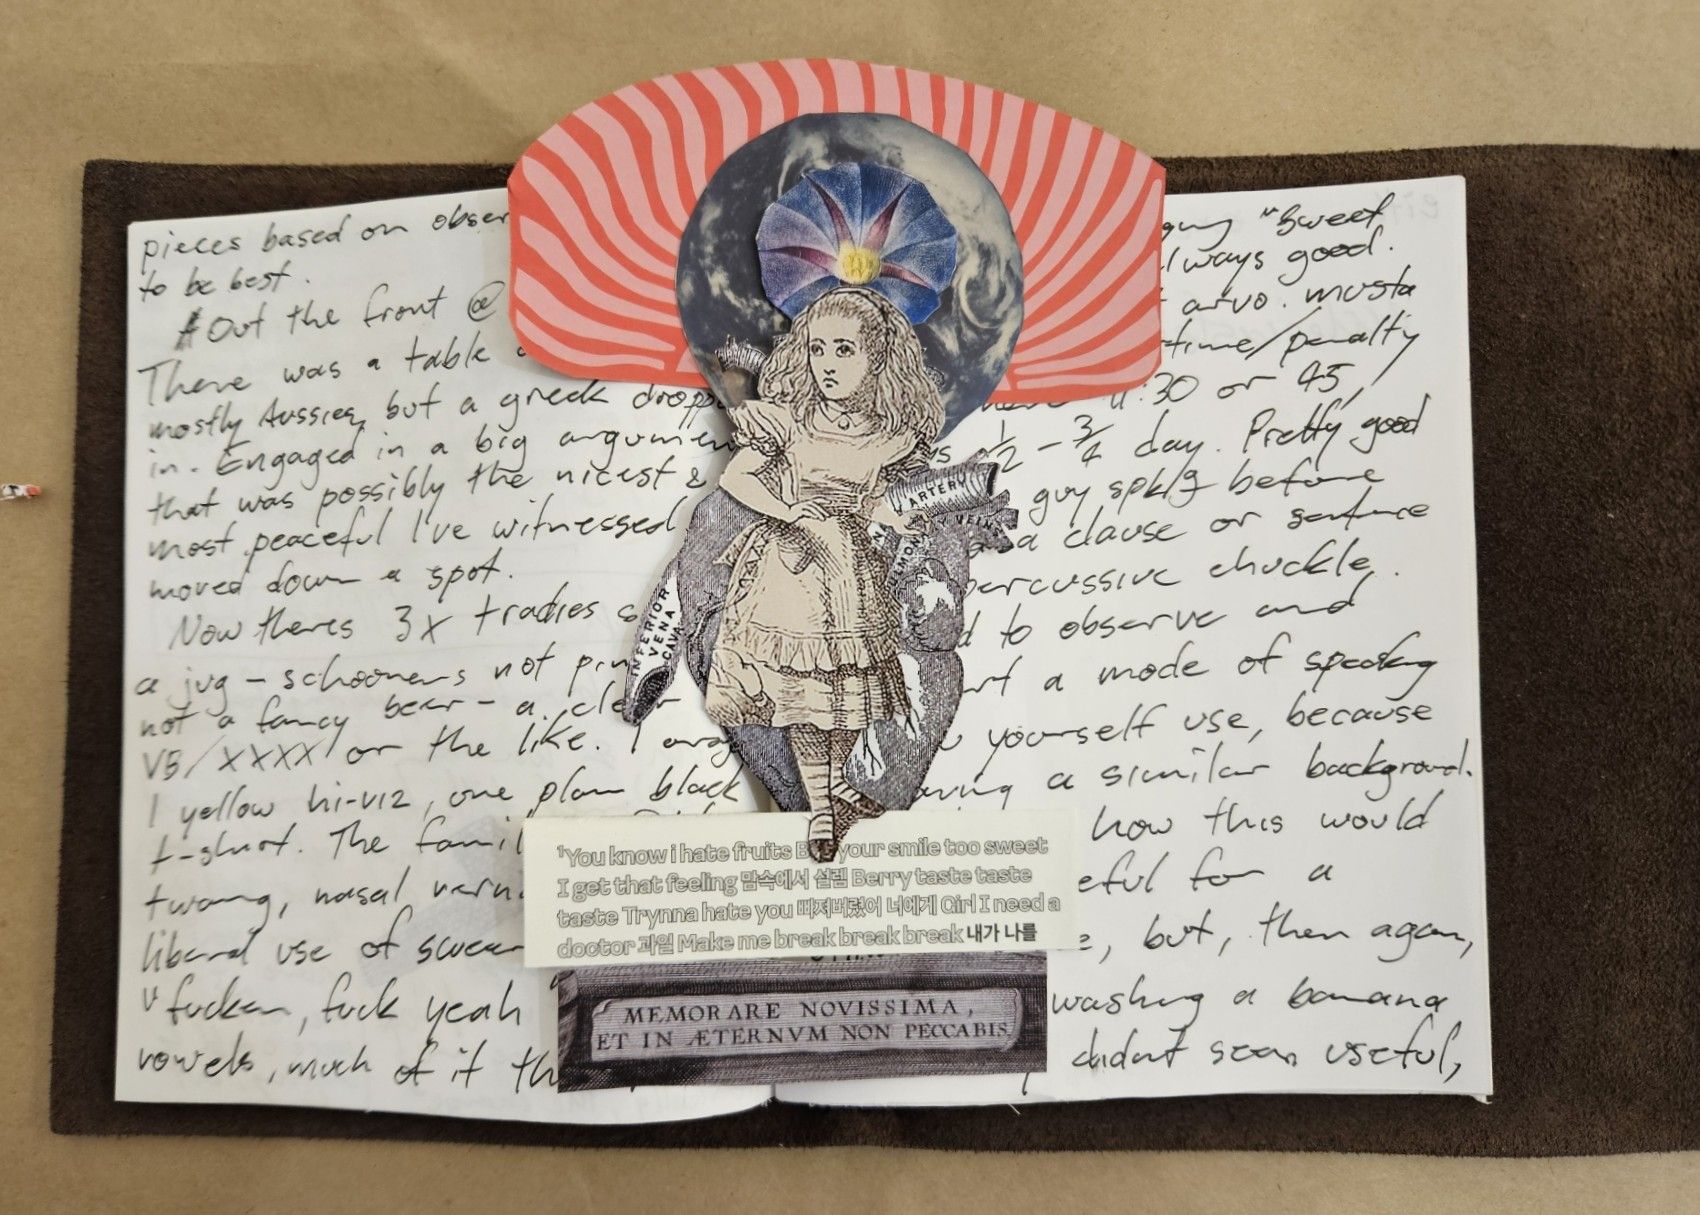 pieces based on obser
to be best.
Out the front @
There was a table
mostly Aussies, but a greek dropp
in. Engaged in a big argumen
that was possibly the nicest &
most peaceful I've witnessed
moved down a spot.
Now theres 3x tradies
a jug - schooners not
not a fancy beer - a
VB/XXXX or the like. I
1 yellow hi-viz, one plain black
t-shirt. The
twang, nasal
liberal use of swear
"fucken, fuck yeah
vowels, much of it th
"Sweet
always good.
arvo. musta
time/penalty
:30 or 45,
1/2 - 3/4 day. Pretty good
guy before
a clause or sentence
percussive chuckle.
to observe and
a mode of speaking
yourself use, because
a similar background.
how this would
eful for a
, but, then again,
washing a banana
didnt seem useful,
ARTERY
VEINS
INFERIOR
VENA
CAVA
¹You know i hate fruits your smile too sweet
I get that feeling 맘속에서 설렘 Berry taste taste
taste Trynna hate you 빠져버렸어 너에게 Girl I need a
doctor 과일 Make me break break break 내가 나를
MEMORARE NOVISSIMA,
ET IN ÆTERNVM NON PECCABIS